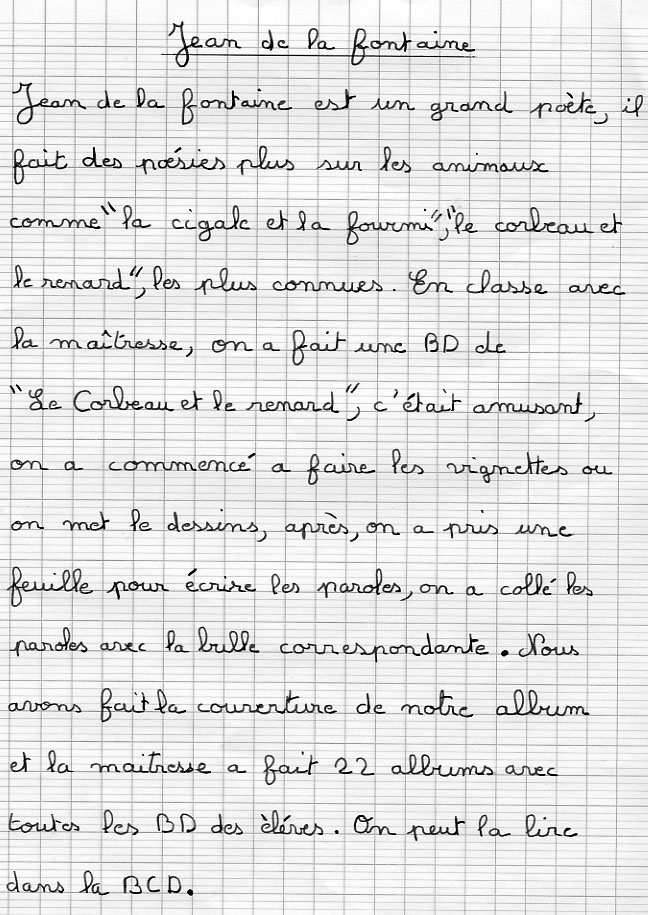 Jean de la fontaine
Jean de la fontaine est un grand poète, il
fait des poésies plus sur les animaux
comme "la cigale et la fourmi", "le corbeau et
le renard", les plus connues. En classe avec
la maîtresse, on a fait une BD de
"Le Corbeau et le renard", c'était amusant,
on a commencé a faire les vignettes ou
on met le dessins, après, on a pris une
feuille pour écrire les paroles, on a collé les
paroles avec la bulle correspondante. Nous
avons fait la couverture de notre album
et la maitresse a fait 22 albums avec
toutes les BD des éléves. On peut la lire
dans la BCD.